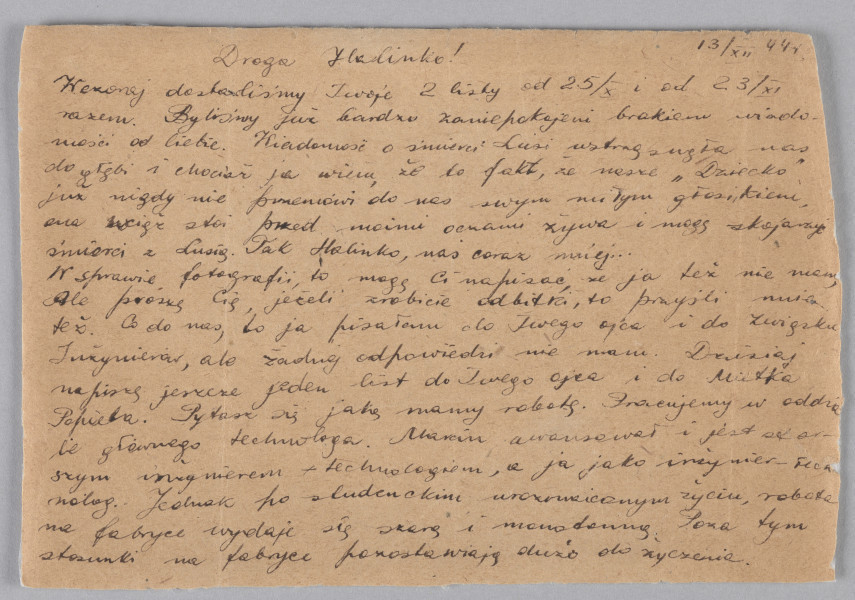 13/XII 44 r.
Droga Halinko!
Wczoraj dostaliśmy Twoje 2 listy od 25/X i od 23/XI
razem. Byliśmy już bardzo zaniepokojeni brakiem wiado-
mości od Ciebie. Wiadomość o śmierci Lusi wstrząsnęła nas
do głębi i chociaż ja wiem, że to fakt, że nasze „Dziecko"
już nigdy nie przemówi do nas swym miłym głosikiem,
ona wciąż stoi przed moimi oczami żywa i mogę skojarzyć
śmierci z Lusią. Tak Halinko, nas coraz mniej...
W sprawie fotografii, to mogę Ci napisać, że ja też nie mam,
Ale proszę Cię, jeżeli zrobicie odbitki, to przyśli mnie
też. Co do nas, to ja pisałam do Twego ojca i do Związku
Inżynierów, ale żadnej odpowiedzi nie mam. Dzisiaj
napiszę jeszcze jeden list do Twego ojca i do Mietka
Popiela. Pytasz się jaką mamy robotę. Pracujemy w oddzia
le głównego technologa. Marcin awansował i jest star-
szym inżynierem-technologiem, a ja jako inżynier-tech
nolog. Jednak po studenckim urozmaiconym życiu, robota
na fabryce wydaje się szarą i monotonną. Poza tym
stosunki na fabryce pozostawiają dużo do życzenia.